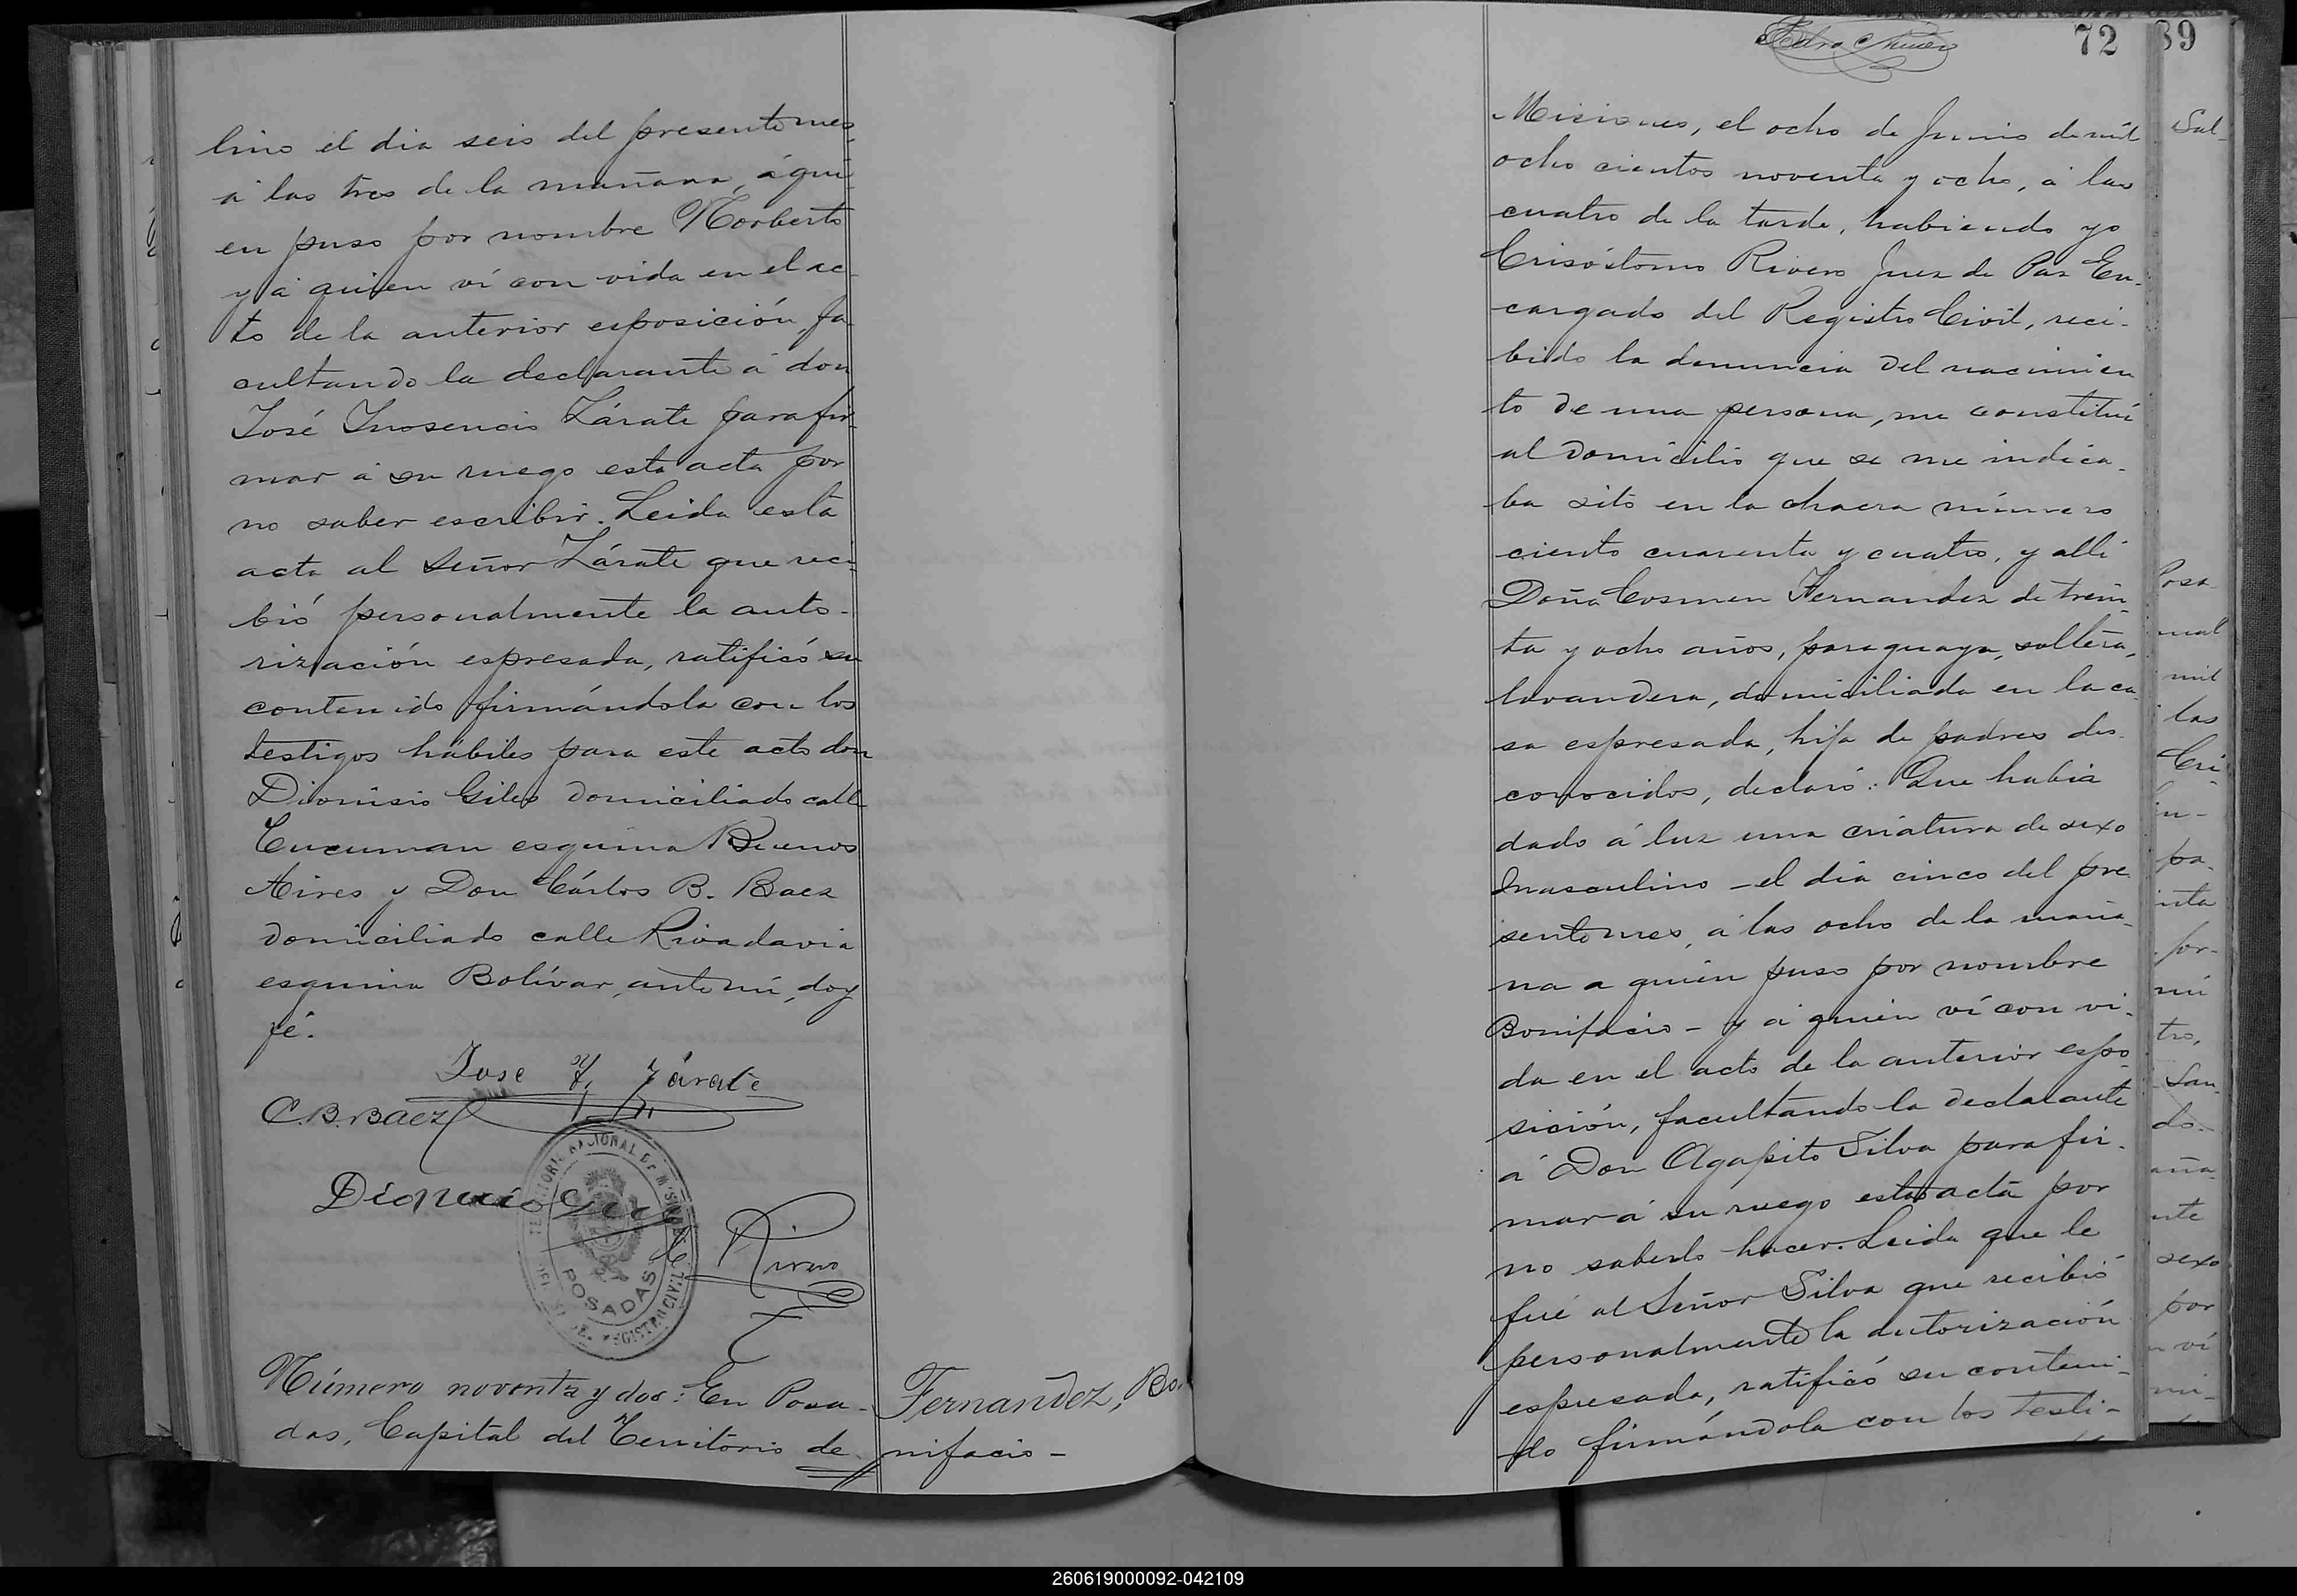 lino el dia seis del presente mes,
á las tres de la mañana, á qui-
en puso por nombre Norberto
y á quien ví con vida en el ac-
to de la anterior esposición, fa-
cultando la declarante á don
José Inosencio Zárate para fir-
mar á su ruego esta acta por
no saber escribir. Leida esta
acta al Señor Zárate que reci-
bió personalmente la auto-
rización espresada, ratificó su
contenido firmándola con los
testigos hábiles para este acto don
Dionisio Giles domiciliado calle
Tucuman esquina Buenos
Aires y Don Cárlos B. Baez
domiciliado calle Rivadavia
esquina Bolívar, ante mí, doy
fé.
Jose Y. Zárate
C.B. Baez
TERRITORIO NACIONAL DE MISIONES
POSADAS
REGISTRO CIVIL
C Rivero
Número noventa y dos: En Posa-
das, Capital del Territorio de
Fernandez, Bo-
nifacio -
72
Misiones, el ocho de Junio de mil
ocho cientos noventa y ocho, á las
cuatro de la tarde, habiendo yo
Crisóstomo Rivero Juez de Paz En-
cargado del Registro Civil, reci-
bido la denuncia del nacimien
to de una persona, me constituí
al domicilio que se me indica-
ba sito en la chacra número
ciento cuarenta y cuatro, y alli
Doña Cosmen Fernandez de trein-
ta y ocho años, paraguaya, soltera,
lavandera, domiciliada en la ca-
sa espresada, hija de padres des-
conocidos, declaró: Que habia
dado á luz una criatura de sexo
masculino - el dia cinco del pre
sente mes, á las ocho de la maña-
na a quien puso por nombre
Bonifacio - y á quien ví con vi-
da en el acto de la anterior espo-
sición, facultando la declarante
á Don Agapito Silva para fir-
mar á su ruego esta acta por
no saberlo hacer. Leida que le
fué al Señor Silva que recibió
personalmente la autorización
espresada, ratificó su conteni-
do firmándola con los testi-
39
Sal-
Posa-
mil
las
Cri
pa-
for-
mi
tro,
San
do.-
aña-
nte
sexo
por
ví
260619000092-042109